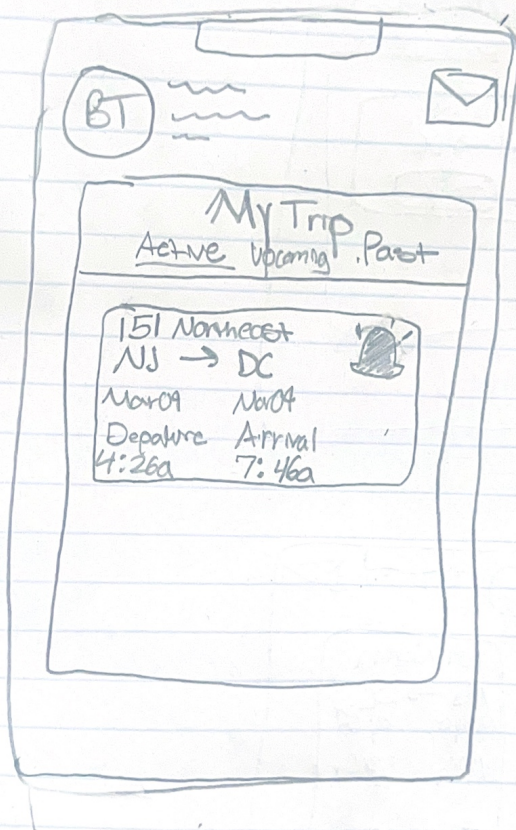 BT
My Trip
Active Upcoming .Past
151 Northeast
NJ → DC
Mar09 Mar09
Depature Arrival
4:26a 7:46a